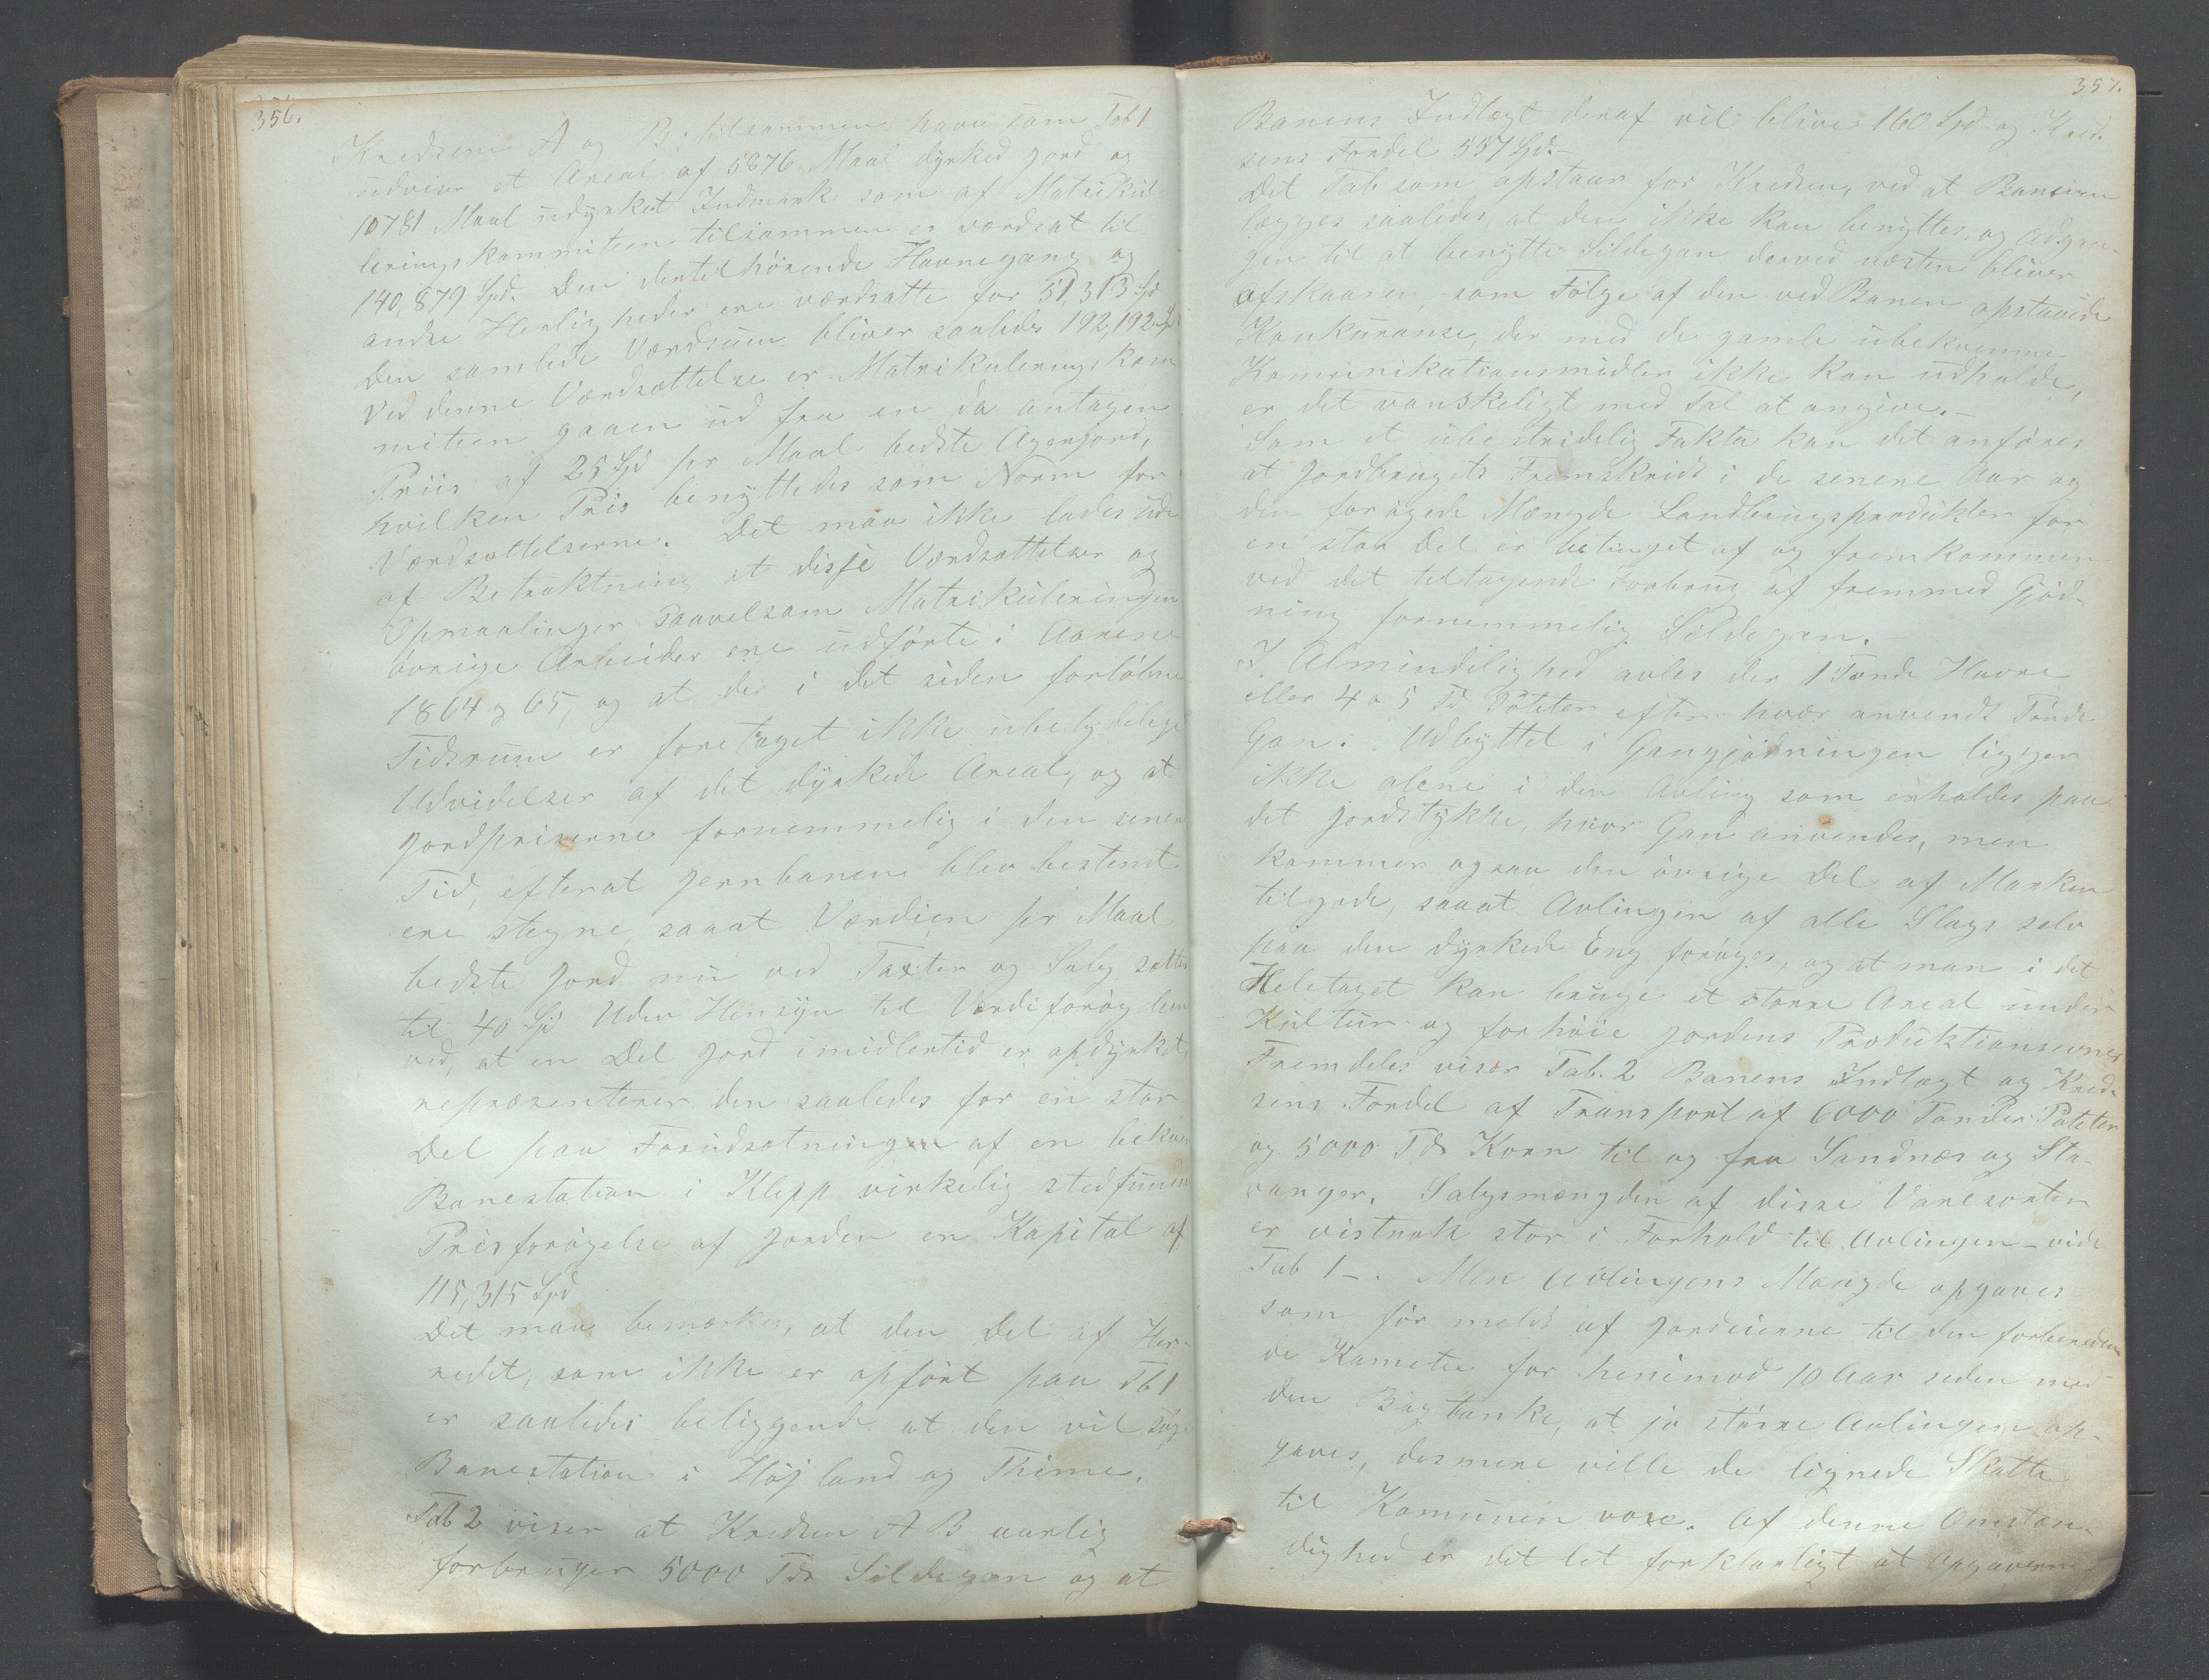 356.
Kredsene A og B. tilsammen have som Tab 1
udviser et Areal af 5876 Maal dyrket Jord og
10781 Maal udyrket Indmark som af Matrikul
leringskommiteen tilsammen er værdsat til
140,879 Spd. Den dertil hørende Havnegang og
andre Herligheder ere værdsatte for 51,313 Spd
den samlede Værdsum bliver saaledes 192,192 Sp
Ved denne Værdsættelse er Matrikuleringskom
miteen gaaen ud fra en da antagen
Priis af 25 Spd pr Maal bedste Agerjord,
hvilken Pris benyttedes som Norm for
Værdsættelserne. Det maa ikke lades ude
af Betraktning at disse Værdsættelser og
Opmaalinger saavelsom Matrikuleringen
øvrige Arbeider ere udførte i Aarene
1864 og 65, og at der i det siden forløbne
Tidsrum er foretaget ikke ubetydelige
Udvidelser af det dyrkede Areal, og at
Jordpriserne fornemmelig i den senere
Tid, efterat Jernbanen blev bestemt
ere stegne, saaat Værdien pr Maal
bedste Jord nu ved Taxter og Salg sættes
til 40 Spd Uden Hensyn til Værdiforøgelsen
ved, at en Del Jord imidlertid er opdyrket,
repræsenterer den saaledes for en stor
Del paa Forudsætningen af en bekvem
Banestation i Klepp virkelig stedfunden
Prisforøgelse af Jorden en Kapital af
115,315 Spd
Det maa bemærkes, at den Del af Her-
redet, som ikke er opført paa Tb 1
er saaledes beliggende at den vil søge
Banestation i Højland og Thime.
Tab 2 viser at Kredsen A B aarlig
forbruger 5000 Tdr Sildegan og at
357.
Banens Indtægt deraf vil blive 160 Spd og Kred-
sens Fordel 557 Spd.-
Det Tab som opstaar for Kredsen, ved at Banen
lægges saaledes, at den ikke kan benyttes, og Adgan-
gen til at benytte Sildegan derved næsten bliver
afskaaren som Følge af den ved Banen opstaaede
Konkuranse, der med de gamle ubekvemme
Komunikationsmidler ikke kan udholdes,
er det vanskeligt med Tal at angive.-
Som et ubestridelig Fakta kan det anføres
at Jordbrugets Fremskridt i de senere Aar og
den forøgede Mængde Landbrugsprodukter for
en stor Del er betinget af og fremkommen
ved det tiltagende Forbrug af fremmed Gjød-
ning fornemmelig Sildegan.
I Almindelighed avles der 1 Tønde Havre
eller 4 a 5 Td Poteter efter hver anvendt Tønde
Gan. Udbyttet i Gangjødningen ligger
ikke alene i den Avling som erholdes paa
det Jordstykke, hvor Gan anvendes, men
kommer ogsaa den øvrige Del af Marken
tilgode, saaat Avlingen af alle Slags selv
paa den dyrkede Eng forøges, og at man i det
Heletaget kan bruge et større Areal under
Kultur og forhøie Jordens Produktionsevne
Fremdeles viser Tab. 2 Banens Indtægt og Kred-
sens Fordel af Transport af 6000 Tønder Poteter
og 5000 Tdr Korn til og fra Sandnæs og Sta-
vanger. Salgsmængden af disse Varesorter
er vistnok stor i Forhold til Avlingen - vide
Tab 1 -. Men Avlingens Mængde opgaves
som før meldt af Jordeierne til den forbereden
de Komitee for henimod 10 Aar siden med
den Bagtanke, at jo større Avlingen op-
gaves, desmere ville de lignede Skatte
til Komunen voxe. Af denne Omstæn-
dighed er det let forklarligt at Opgaverne